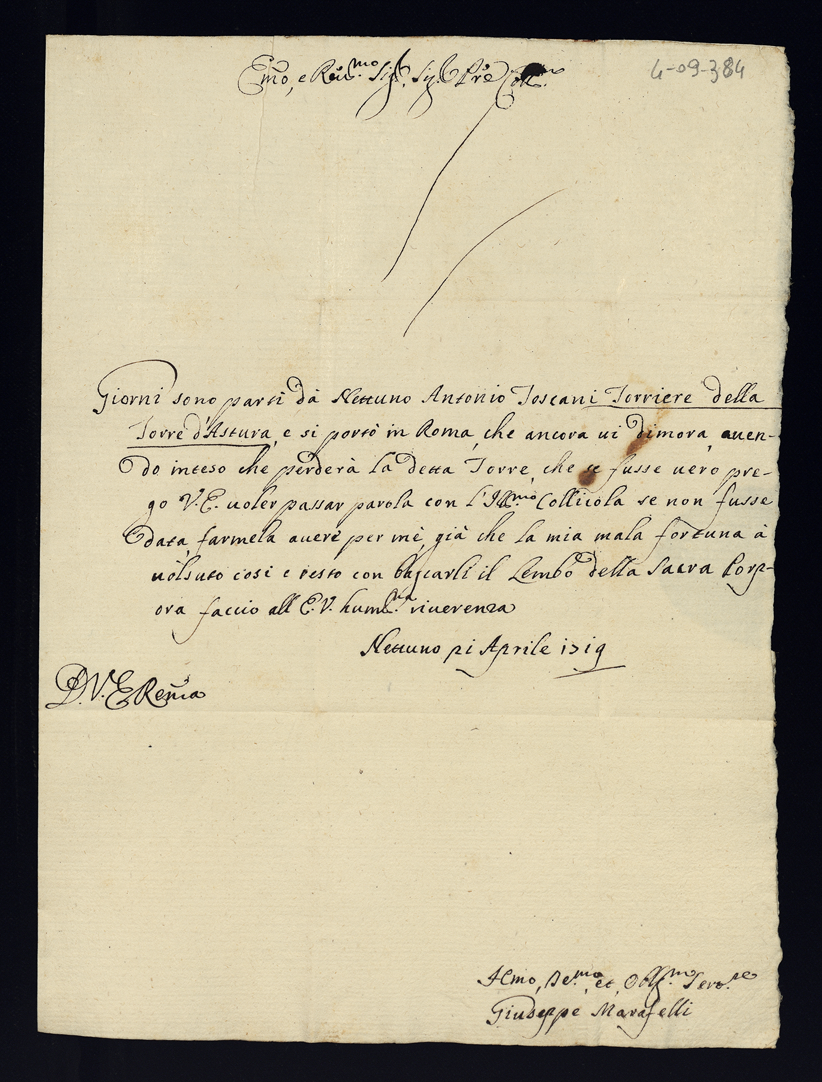 Emo, e Reu.mo Sig.r Sig.r Pre Coll.mo
4-09-384
Giorni sono parti dà Nettuno Antonio Toscani Torriere della
Torre d'Astura, e si portò in Roma, che ancora ui dimora, auen-
do inteso che perderà la detta Torre, che se fusse uero pre-
go V.E. uoler passar parola con l'Ill.mo Collicola se non fusse
data, farmela auere per me, già che la mia mala fortuna à
uolsuto cosi e resto con basciarli il Lembo della Sacra Porp-
ora faccio all E.V. hum.ma riuerenza
Nettuno pi Aprile 1719
D.V. E Rema
Humo, De.mo, et, Obll.mo Seru.re
Giuseppe